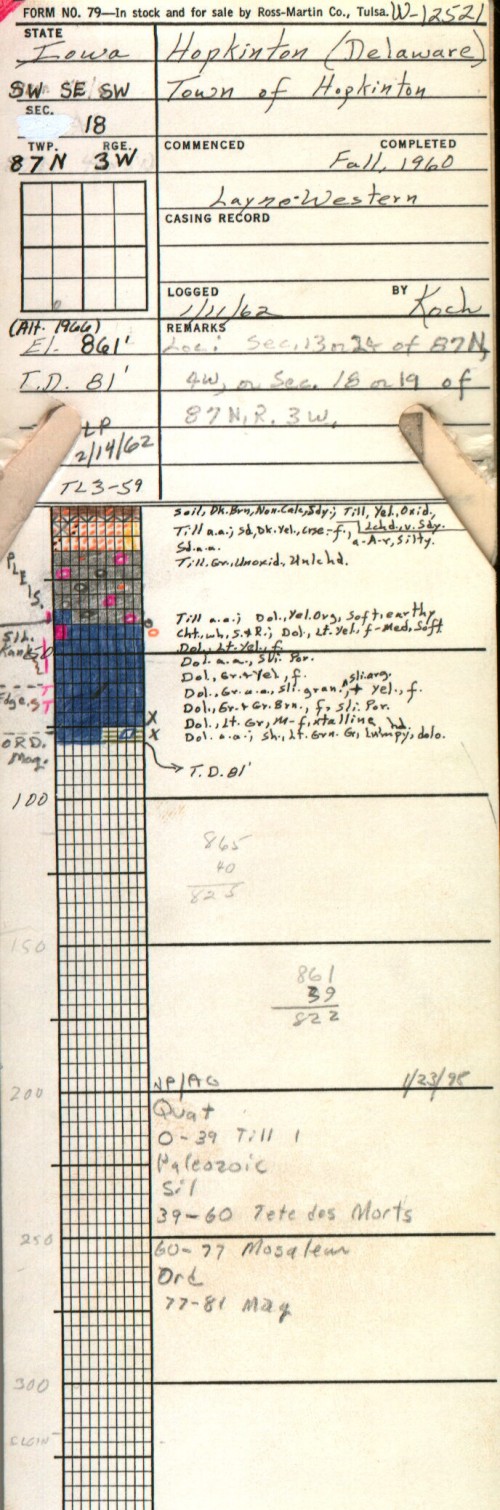 FORM NO. 79—In stock and for sale by Ross-Martin Co., Tulsa. W-12521
STATE
Iowa
Hopkinton (Delaware)
SW SE SW
Town of Hopkinton
SEC.
18
TWP. RGE.
87N 3W
COMMENCED COMPLETED
Fall, 1960
Layne-Western
CASING RECORD
LOGGED BY
1/11/62 Koch
(Alt. 1966)
El. 861'
REMARKS
Loc: Sec. 13 or 24 of 87N,
T.D. 81'
4W, or Sec. 18 or 19 of
87N, R. 3W.
LP
2/14/62
TL3-59
Soil, Dk. Brn, Non-Calc, Sdy.; Till, Yel., Oxid.
Till a.a.; Sd, Dk. Yel., Crse-f., Lchd., v. Sdy.
Sd. a.a. a-A-r, Silty.
Till, Gr., Unoxid., Unlchd.
PLEIS.
Till a.a.; Dol., Yel. Org, Soft, earthy
Cht., wh, S.&R.; Dol., Lt. Yel., f-Med, Soft
SIL.
Kank.
50
Dol., Lt. Yel., f.
Dol. a.a., Sli. Por.
Dol., Gr. & Yel., f. sli. arg.
Dol., Gr. a.a., Sli. gran., + Yel., f.
Edge.
Dol., Gr. & Gr. Brn., f, Sli. Por.
Dol., Lt. Gr., M-f, xtalline, hd.
Dol. a.a.; Sh., Lt. Grn. Gr, Lumpy, dolo.
X
X
ORD.
Maq.
T.D. 81'
100
865
40
825
150
861
39
822
200
NP/AG 1/23/98
Quat
0-39 Till 1
Paleozoic
Sil
39-60 Tete des Morts
250
60-77 Mosalem
Ord
77-81 Maq
300
ELGIN